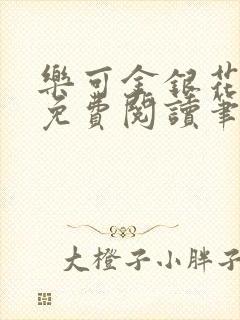 樂可金銀花
免費閱讀筆
大橙子小胖子